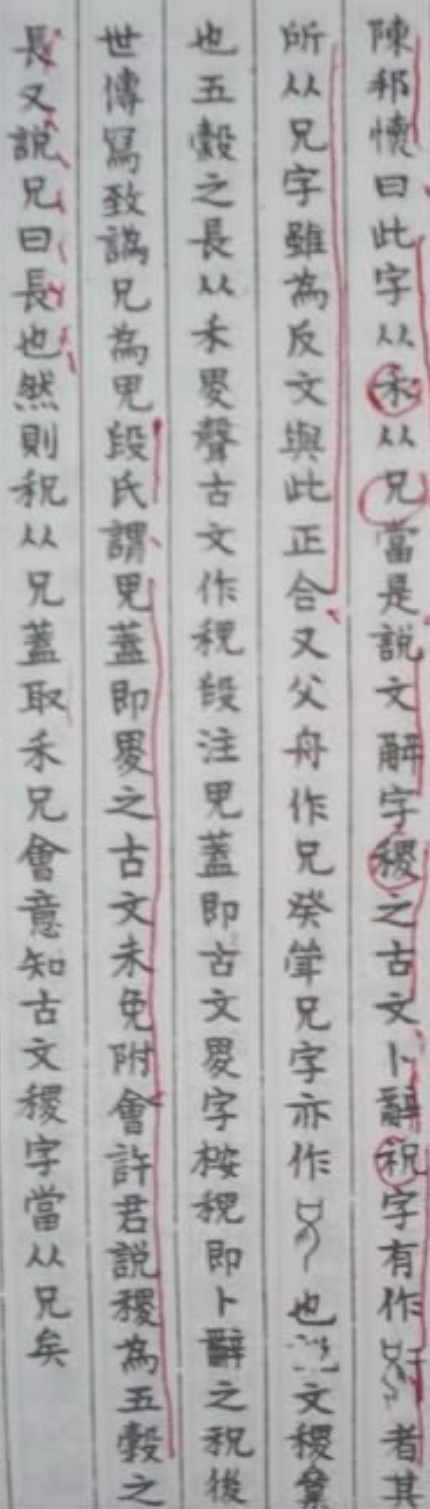 陳邦懷曰此字从禾从兄當是說文解字稷之古文卜辭祝字有作者其
所从兄字雖為反文與此正合又父舟作兄癸斝兄字亦作也文稷𪗉
也五穀之長从禾畟聲古文作稅段注畟蓋即古文畟字按稅即卜辭之祝後
世傳寫致譌兄為㚇段氏謂㚇蓋即畟之古文未免附會許君說稷為五穀之
長又說兄曰長也然則䄆从兄蓋取禾兄會意知古文稷字當从兄矣